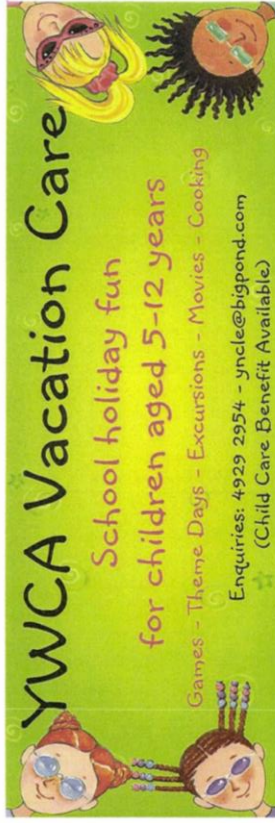 YWCA Vacation Care
School holiday fun
for children aged 5-12 years
Games - Theme Days - Excursions - Movies - Cooking
Enquiries: 4929 2954 - yncle@bigpond.com
(Child Care Benefit Available)